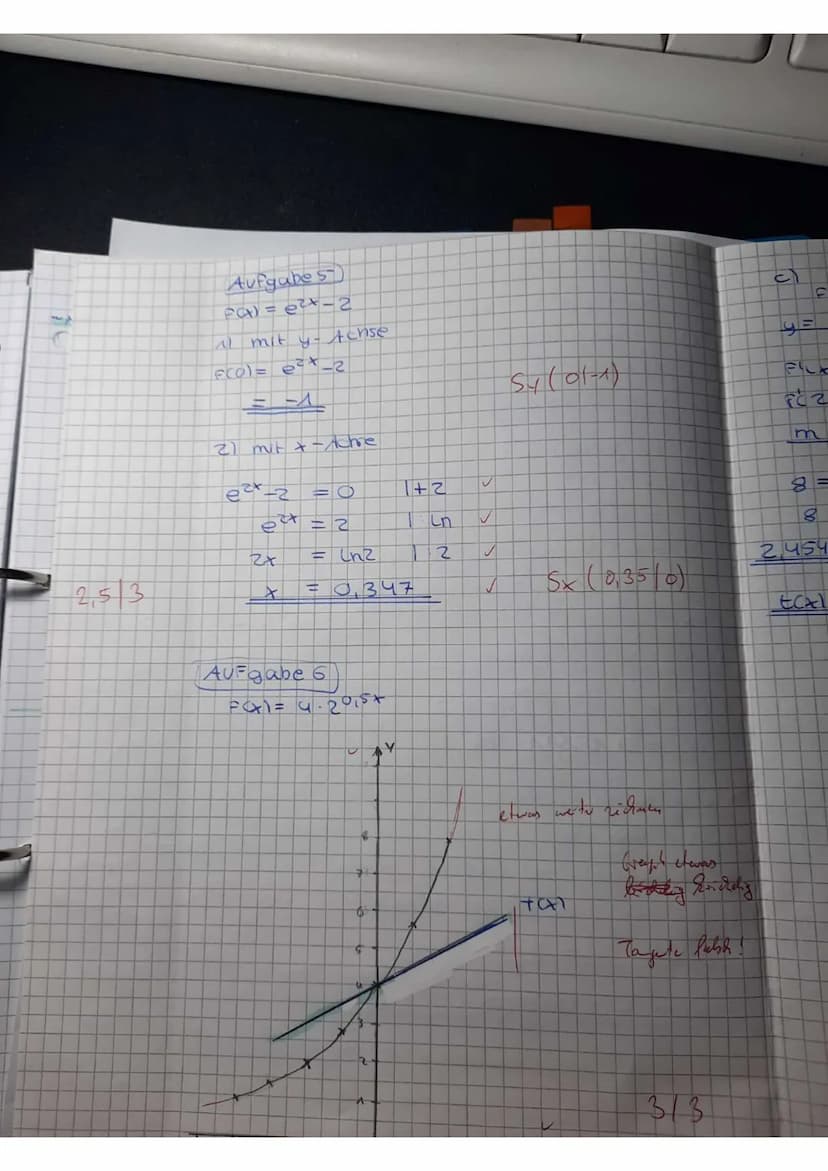 Aufgabe 5
F(x) = e^2x - 2
1) mit y-Achse
F(0) = e^2x - 2
= -1
Sy (0|-1)
2) mit x-Achse
e^2x - 2 = 0 |+2 ✓
e^2x = 2 | ln ✓
2x = ln2 | 2 ✓
x = 0,347 ✓
Sx (0,35|0)
2,5|3
Aufgabe 6
F(x) = 4 · 2^0,5x
✓
y
etwas zeichnen
Graph etwas
T(x)
falsch!
8
7
6
5
4
3
2
1
3|3
✓
c)
F
y =
m
8 =
8
2,454
t(x)